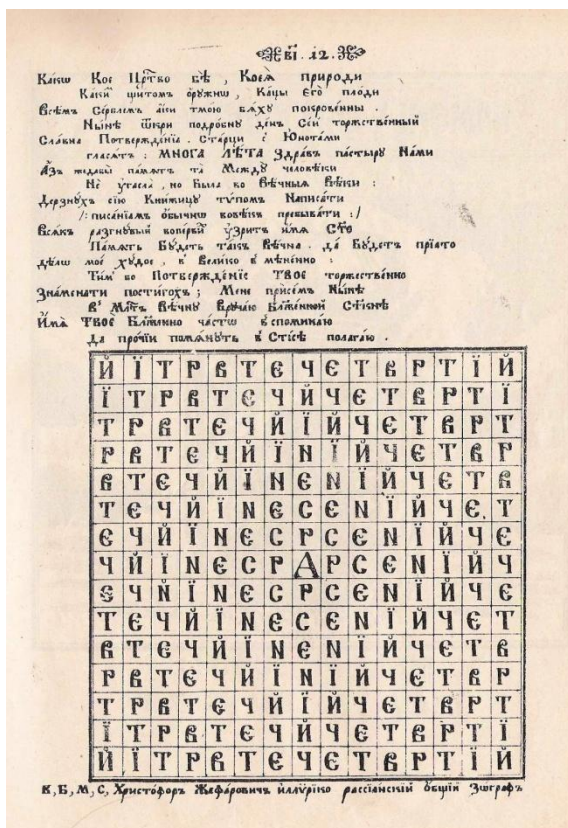 ВІ . 12 .
Какѡ Кое Црⷭ҇тво бѣ , Коеѧ̀ природи
Какѝ щитомъ ѻружиѡ , Кацы Егѡ̀ плоди
Всѣмъ Серблемъ аки тмою бѧху покровенны .
Нынѣ Ѿкри подробну день Сей торжественный
Славна Потвержденїѧ . Старци с̾ Юнотами
гласѧтъ : МНОГА ЛѢТА Здравъ пастыру Нами
Азъ жедавы памѧть та Между человѣки
Не угасла , но была во Вѣчныѧ Вѣки :
Дерзнухъ сїю Книжицу тѵпомъ Написати
/: писанїамъ обычнѡ вовѣкъ пребывати :/
Всѧкъ разгнувый вопервїй ᲂузритъ имѧ СТО
Памѧть Будетъ такъ Вѣчна . да Будетъ прїато
дѣлѡ мое худое , в̾ Велико ᲂу мѣненно :
Тим̾ во Потвержденїе ТВОЕ торжественно
Знаменати постигохъ ; Мене присемъ Нынѣ
В̾ Млⷭ҇ть Вѣчну Вручаю Блаженной Сѣкнѣ
Имѧ ТВОЕ Блажимо частѡ в̾споминаю
Да прочїи помѧнутъ в̾ Стїсѣ полагаю .
Й Ї Т Р В Т Е Ч Е Т В Р Т Ї Й
Ї Т Р В Т Е Ч Й Ч Е Т В Р Т Ї
Т Р В Т Е Ч Й Ї Й Ч Е Т В Р Т
Р В Т Е Ч Й Ї N Ї Й Ч Е Т В Р
В Т Е Ч Й Ї N Е N Ї Й Ч Е Т В
Т Е Ч Й Ї N Е С Е N Ї Й Ч Е Т
Е Ч Й Ї N Е С Р С Е N Ї Й Ч Е
Ч Й Ї N Е С Р А Р С Е N Ї Й Ч
Е Ч Й Ї N Е С Р С Е N Ї Й Ч Е
Т Е Ч Й Ї N Е С Е N Ї Й Ч Е Т
В Т Е Ч Й Ї N Е N Ї Й Ч Е Т В
Р В Т Е Ч Й Ї N Ї Й Ч Е Т В Р
Т Р В Т Е Ч Й Ї Й Ч Е Т В Р Т
Ї Т Р В Т Е Ч Й Ч Е Т В Р Т Ї
Й Ї Т Р В Т Е Ч Е Т В Р Т Ї Й
К , Б , М , С , Христофоръ Жефаровичъ иллѵрїко рассїанскїй ᲂубщїй Зѡграфъ